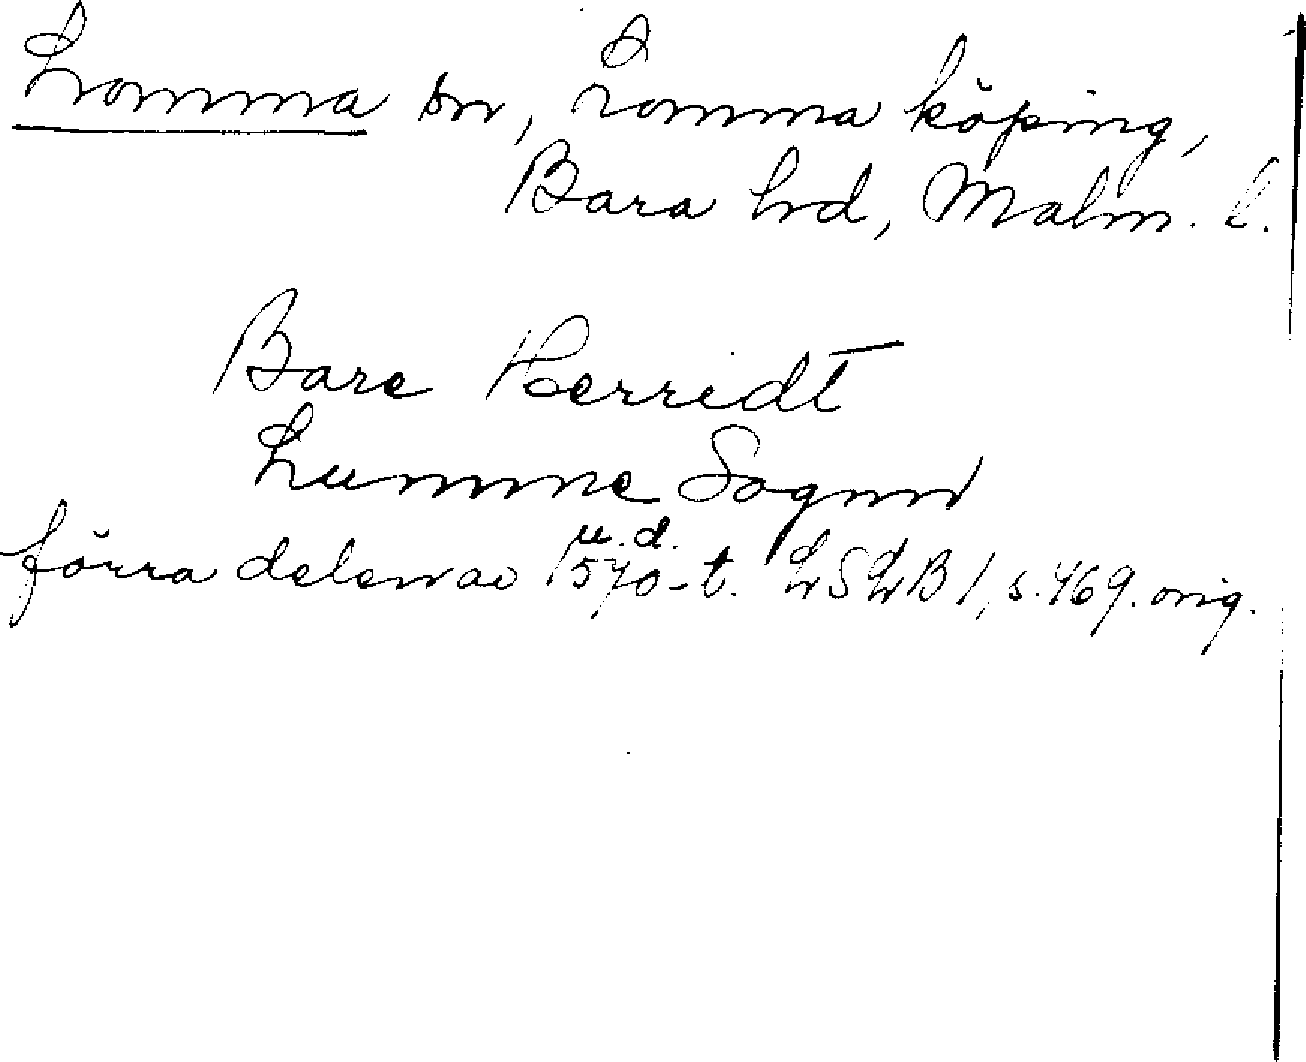 Lomma sn, Lomma köping,
Bara hd, Malm. l.
Bare Herridt
Lumme Sognn
u. d.
förra delen av 1570-t. LSLB 1, s. 469. orig.